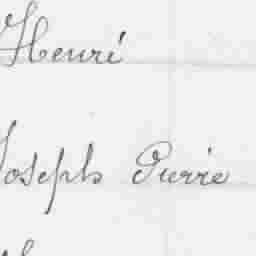 Henri
Joseph Pierre